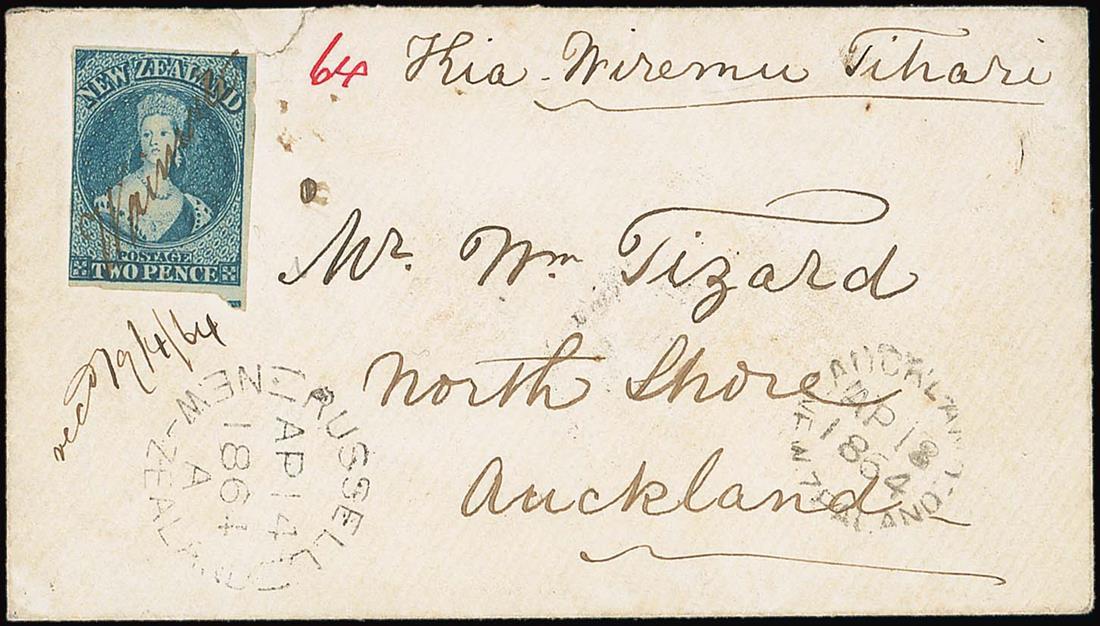 NEW ZEALAND
POSTAGE
TWO PENCE
64 Kia Wiremu Tihari
Mr. Wm Tizard
North Shore
Auckland
recd 19/4/64
RUSSELL
AP 14
1864
A
NEW-ZEALAND
AUCKLAND
AP 18
1864
NEW ZEALAND